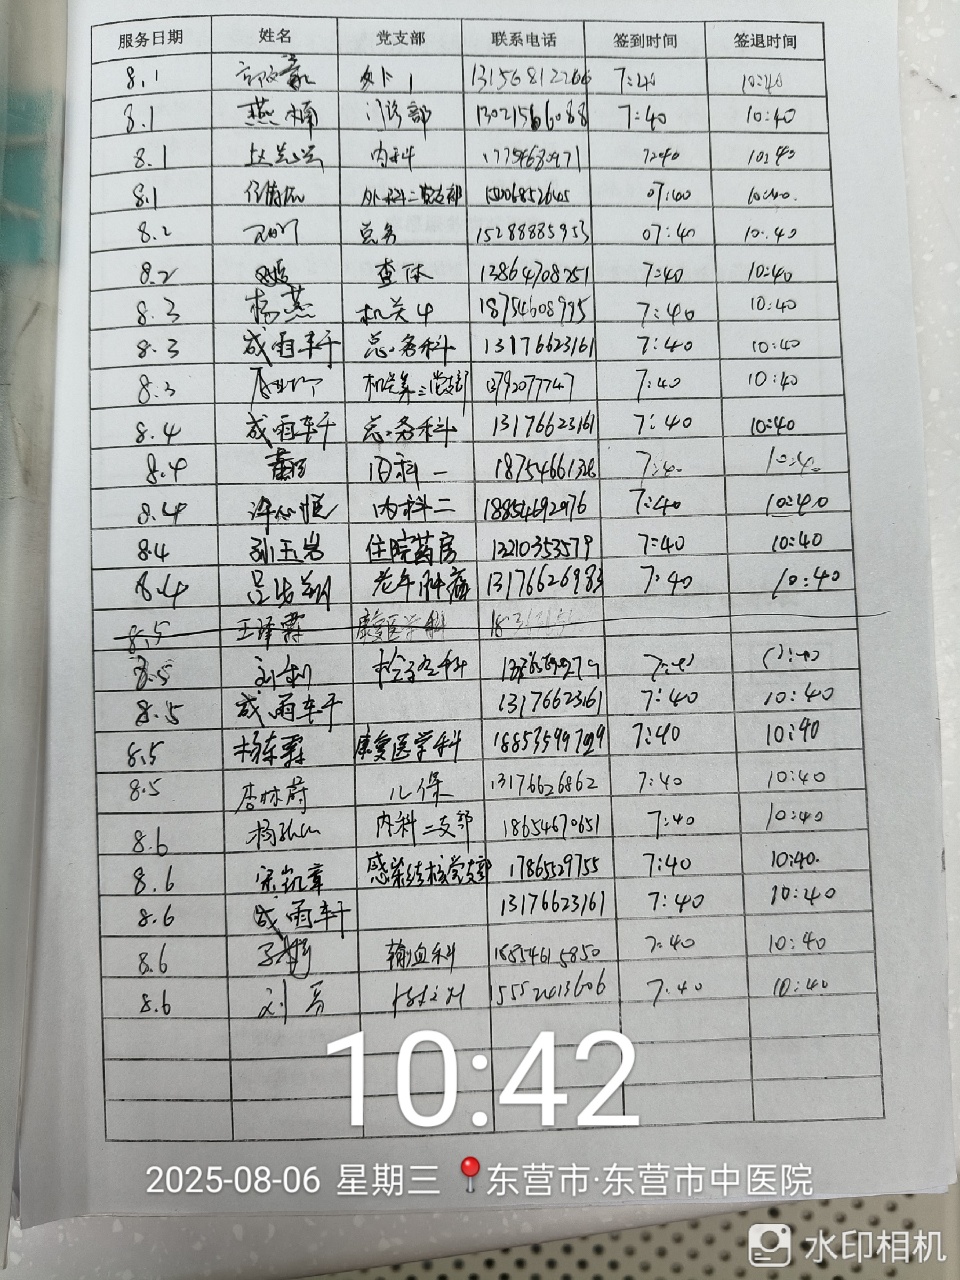 服务日期 姓名 党支部 联系电话 签到时间 签退时间
8.1 外 1 13156812266 7:40 10:40
8.1 燕楠 门诊部 13021566088 7:40 10:40
8.1 内科 17754680971 7:40 10:40
8.1 外科二党支部 15006852605 07:40 10:40.
8.2 总务 15288885953 07:40 10:40
8.2 查体 13864708251 7:40 10:40
8.3 杨燕 机关4 18754608995 7:40 10:40
8.3 成雨轩 总务科 13176623161 7:40 10:40
8.3 机关第三党支部 13792077747 7:40 10:40
8.4 成雨轩 总务科 13176623161 7:40 10:40
8.4 内科一 7:40 10:40
8.4 许心恒 内科二 18854692976 7:40 10:40
8.4 孙玉岩 住院药房 13210353579 7:40 10:40
8.4 老年肿瘤 13176626983 7:40 10:40
8.5 王泽霖 康复医学科
8.5 刘利 检查科 7:40 10:40
8.5 成雨轩 13176623161 7:40 10:40
8.5 杨东霖 康复医学科 18853599729 7:40 10:40
8.5 李林蔚 儿保 13176626862 7:40 10:40
8.6 内科二支部 18654670651 7:40 10:40
8.6 宋凯章 感染结核党支部 17865529755 7:40 10:40.
8.6 成雨轩 13176623161 7:40 10:40
8.6 输血科 18854615850 7:40 10:40
8.6 刘 15552013606 7:40 10:40
10:42
2025-08-06 星期三 东营市·东营市中医院
水印相机